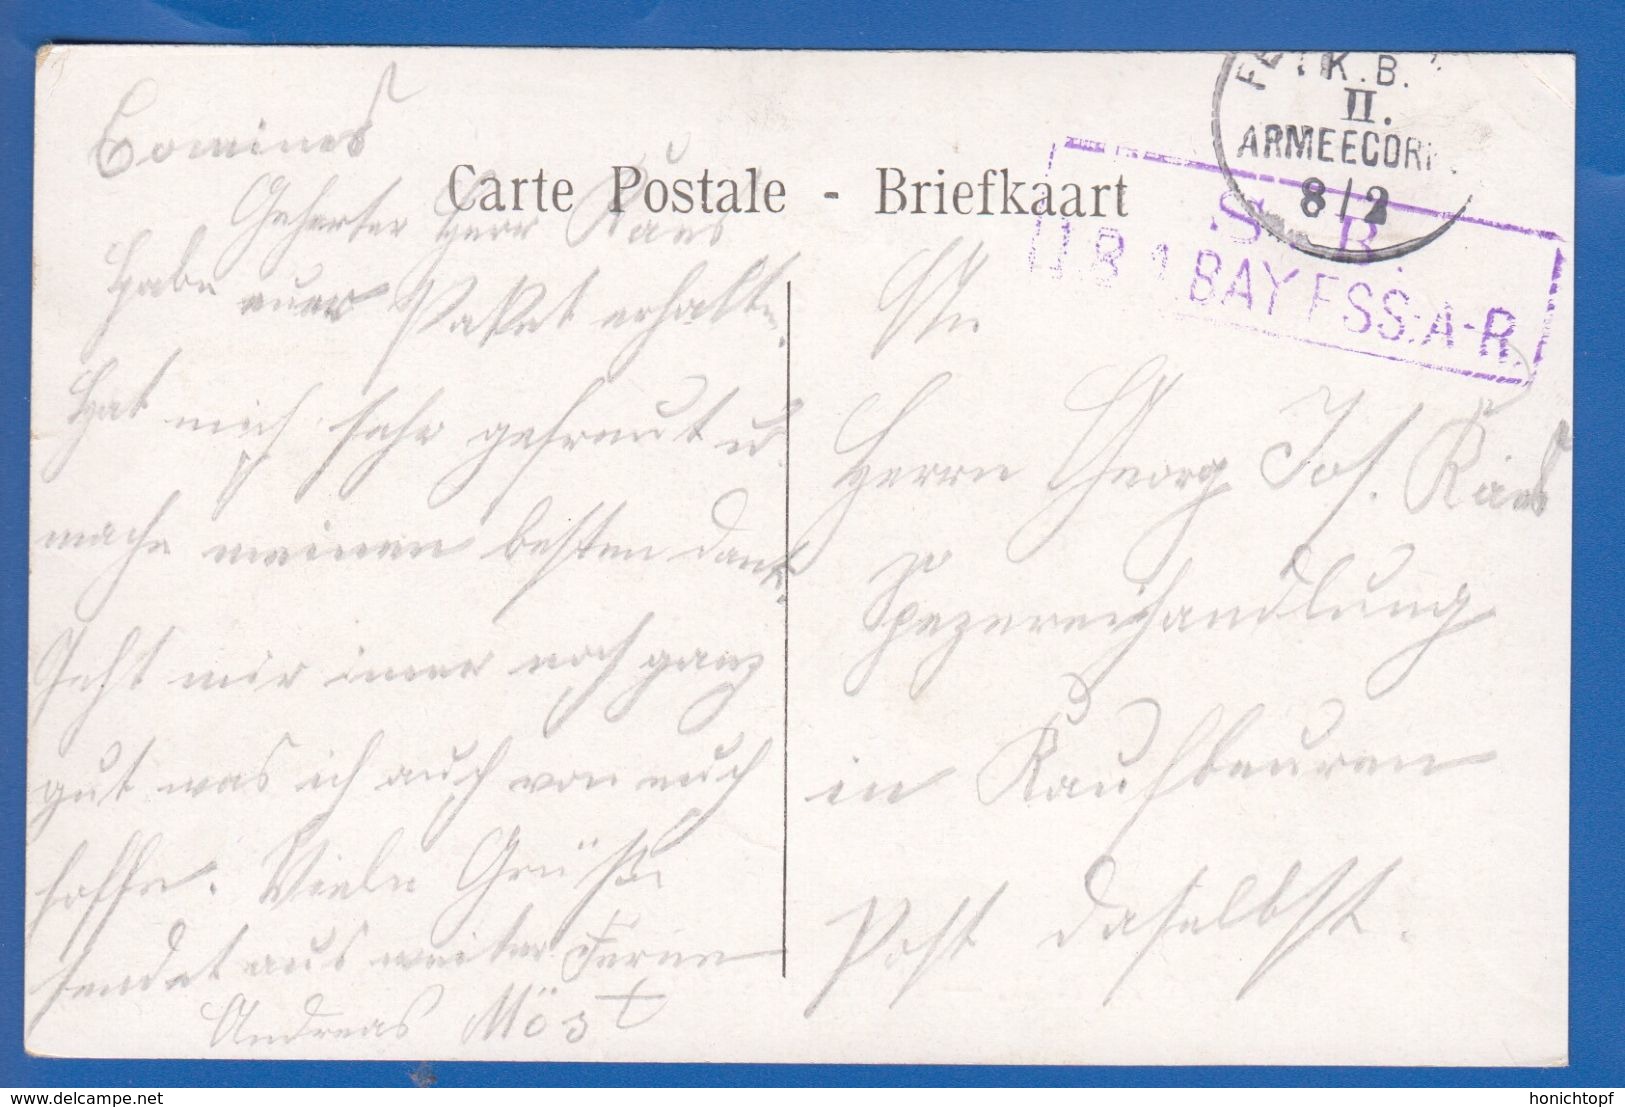 Comines
Carte Postale - Briefkaart
Geherter Herr Kaes
Habe euer Paket erhalten.
Hat mich sehr gefreut u.
mache meinen besten Dank.
Geht mir imer noch ganz
gut was ich auch von euch
hoffe. Viele Grüße
sendet aus weiter Ferne
Andreas Möst
K.B.
II.
ARMEECOR
8/2
S. B.
BAY FSS.A-R.
An
Herrn Georg Jos. Kaes
Spezereihandlung
in Kaufbeuren
Post daselbst.
delcampe.net
honichtopf